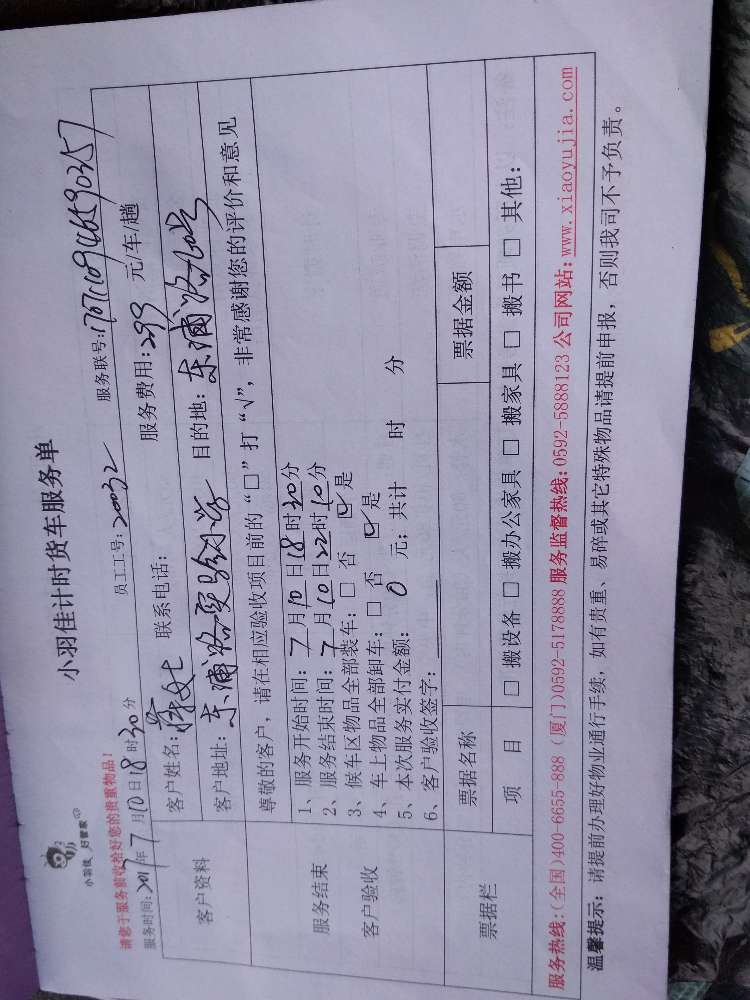 小羽佳计时货车服务单
小羽佳 好管家
请您于服务前收拾好您的贵重物品！
服务时间：2017年7月10日18时30分 员工工号：20032 服务联号：
客户资料
客户姓名： 联系电话： 服务费用：299元/车/趟
客户地址：东浦路 目的地：东浦路
服务结束
客户验收
尊敬的客户，请在相应验收项目前的“□”打“√”，非常感谢您的评价和意见
1、服务开始时间：7月10日18时30分
2、服务结束时间：7月10日22时10分
3、候车区物品全部装车：□ 否 ☑ 是
4、车上物品全部卸车：□ 否 ☑ 是
5、本次服务实付金额：0元；共计 时 分
6、客户验收签字：
票据栏
票据名称 票据金额
项 目 □ 搬设备 □ 搬办公家具 □ 搬家具 □ 搬书 □ 其他：
服务热线：(全国)400-6655-888（厦门)0592-5178888 服务监督热线：0592-5888123 公司网站：www.xiaoyujia.com
温馨提示：请提前办理好物业通行手续，如有贵重、易碎或其它特殊物品请提前申报，否则我司不予负责。